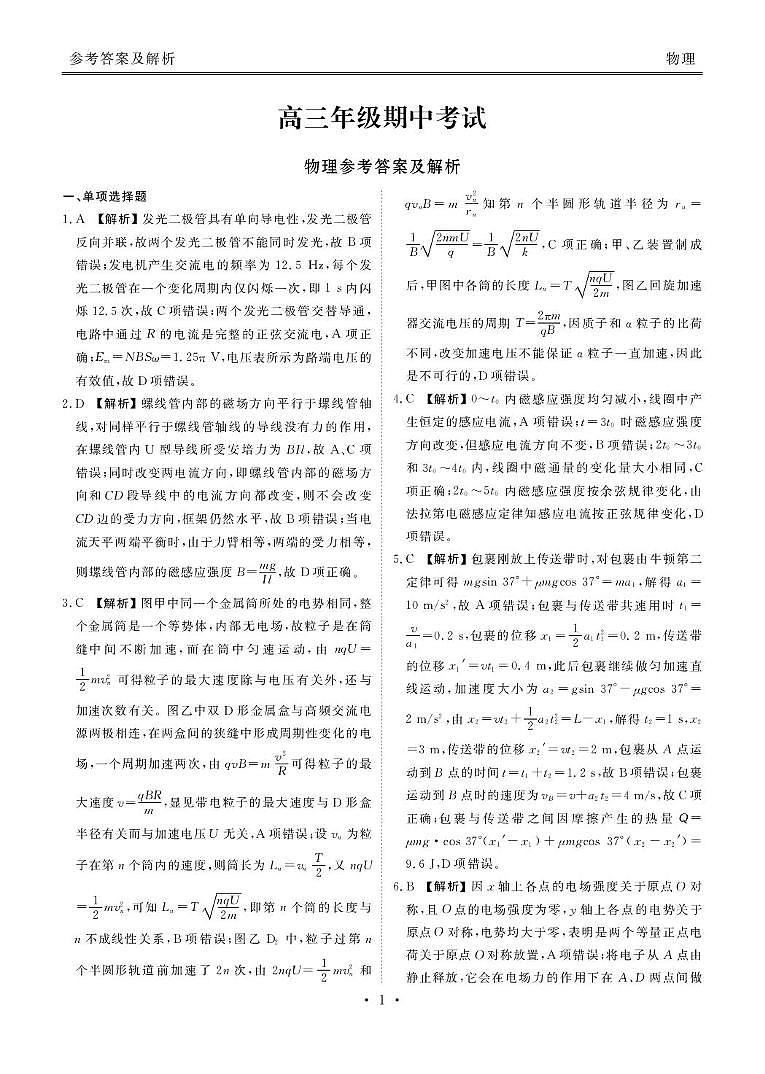 参考答案及解析 物理
高三年级期中考试
物理参考答案及解析
一、单项选择题
1. A 【解析】发光二极管具有单向导电性,发光二极管
反向并联,故两个发光二极管不能同时发光,故 B 项
错误;发电机产生交流电的频率为 12.5 Hz,每个发
光二极管在一个变化周期内仅闪烁一次,即 1 s 内闪
烁 12.5 次,故 C 项错误;两个发光二极管交替导通,
电路中通过 R 的电流是完整的正弦交流电,A 项正
确;Eₘ=NBSω=1.25π V,电压表所示为路端电压的
有效值,故 D 项错误。
2. D 【解析】螺线管内部的磁场方向平行于螺线管轴
线,对同样平行于螺线管轴线的导线没有力的作用,
在螺线管内 U 型导线所受安培力为 BIl,故 A、C 项
错误;同时改变两电流方向,即螺线管内部的磁场方
向和 CD 段导线中的电流方向都改变,则不会改变
CD 边的受力方向,框架仍然水平,故 B 项错误;当电
流天平两端平衡时,由于力臂相等,两端的受力相等,
则螺线管内部的磁感应强度 B=mg/Il,故 D 项正确。
3. C 【解析】图甲中同一个金属筒所处的电势相同,整
个金属筒是一个等势体,内部无电场,故粒子是在筒
缝中间不断加速,而在筒中匀速运动,由 nqU=
1/2 mvₙ² 可得粒子的最大速度除与电压有关外,还与
加速次数有关。图乙中双 D 形金属盒与高频交流电
源两极相连,在两盒间的狭缝中形成周期性变化的电
场,一个周期加速两次,由 qvB=m v²/R 可得粒子的最
大速度 v=qBR/m,显见带电粒子的最大速度与 D 形盒
半径有关而与加速电压 U 无关,A 项错误;设 vₙ 为粒
子在第 n 个筒内的速度,则筒长为 Lₙ=vₙ T/2,又 nqU
=1/2 mvₙ²,可知 Lₙ=T√(nqU/2m),即第 n 个筒的长度与
n 不成线性关系,B 项错误;图乙 D₂ 中,粒子过第 n
个半圆形轨道前加速了 2n 次,由 2nqU=1/2 mvₙ² 和
qvₙB=m vₙ²/rₙ 知第 n 个半圆形轨道半径为 rₙ=
1/B √(2nmU/q)=1/B √(2nU/k),C 项正确;甲、乙装置制成
后,甲图中各筒的长度 Lₙ=T√(nqU/2m),图乙回旋加速
器交流电压的周期 T=2πm/qB,因质子和 α 粒子的比荷
不同,改变加速电压不能保证 α 粒子一直加速,因此
是不可行的,D 项错误。
4. C 【解析】0～t₀ 内磁感应强度均匀减小,线圈中产
生恒定的感应电流,A 项错误;t=3t₀ 时磁感应强度
方向改变,但感应电流方向不变,B 项错误;2t₀～3t₀
和 3t₀～4t₀ 内,线圈中磁通量的变化量大小相同,C
项正确;2t₀～5t₀ 内磁感应强度按余弦规律变化,由
法拉第电磁感应定律知感应电流按正弦规律变化,D
项错误。
5. C 【解析】包裹刚放上传送带时,对包裹由牛顿第二
定律可得 mgsin 37°+μmgcos 37°=ma₁,解得 a₁=
10 m/s²,故 A 项错误;包裹与传送带共速用时 t₁=
v/a₁=0.2 s,包裹的位移 x₁=1/2 a₁t₁²=0.2 m,传送带
的位移 x₁′=vt₁=0.4 m,此后包裹继续做匀加速直
线运动,加速度大小为 a₂=gsin 37°−μgcos 37°=
2 m/s²,由 x₂=vt₂+1/2 a₂t₂²=L−x₁,解得 t₂=1 s,x₂
=3 m,传送带的位移 x₂′=vt₂=2 m,包裹从 A 点运
动到 B 点的时间 t=t₁+t₂=1.2 s,故 B 项错误;包裹
运动到 B 点时的速度为 v_B=v+a₂t₂=4 m/s,故 C 项
正确;包裹与传送带之间因摩擦产生的热量 Q=
μmg·cos 37°(x₁′−x₁)+μmgcos 37°(x₂−x₂′)=
9.6 J,D 项错误。
6. B 【解析】因 x 轴上各点的电场强度关于原点 O 对
称,且 O 点的电场强度为零,y 轴上各点的电势关于
原点 O 对称,电势均大于零,表明是两个等量正点电
荷关于原点 O 对称放置,A 项错误;将电子从 A 点由
静止释放,它会在电场力的作用下在 A、D 两点间做
• 1 •